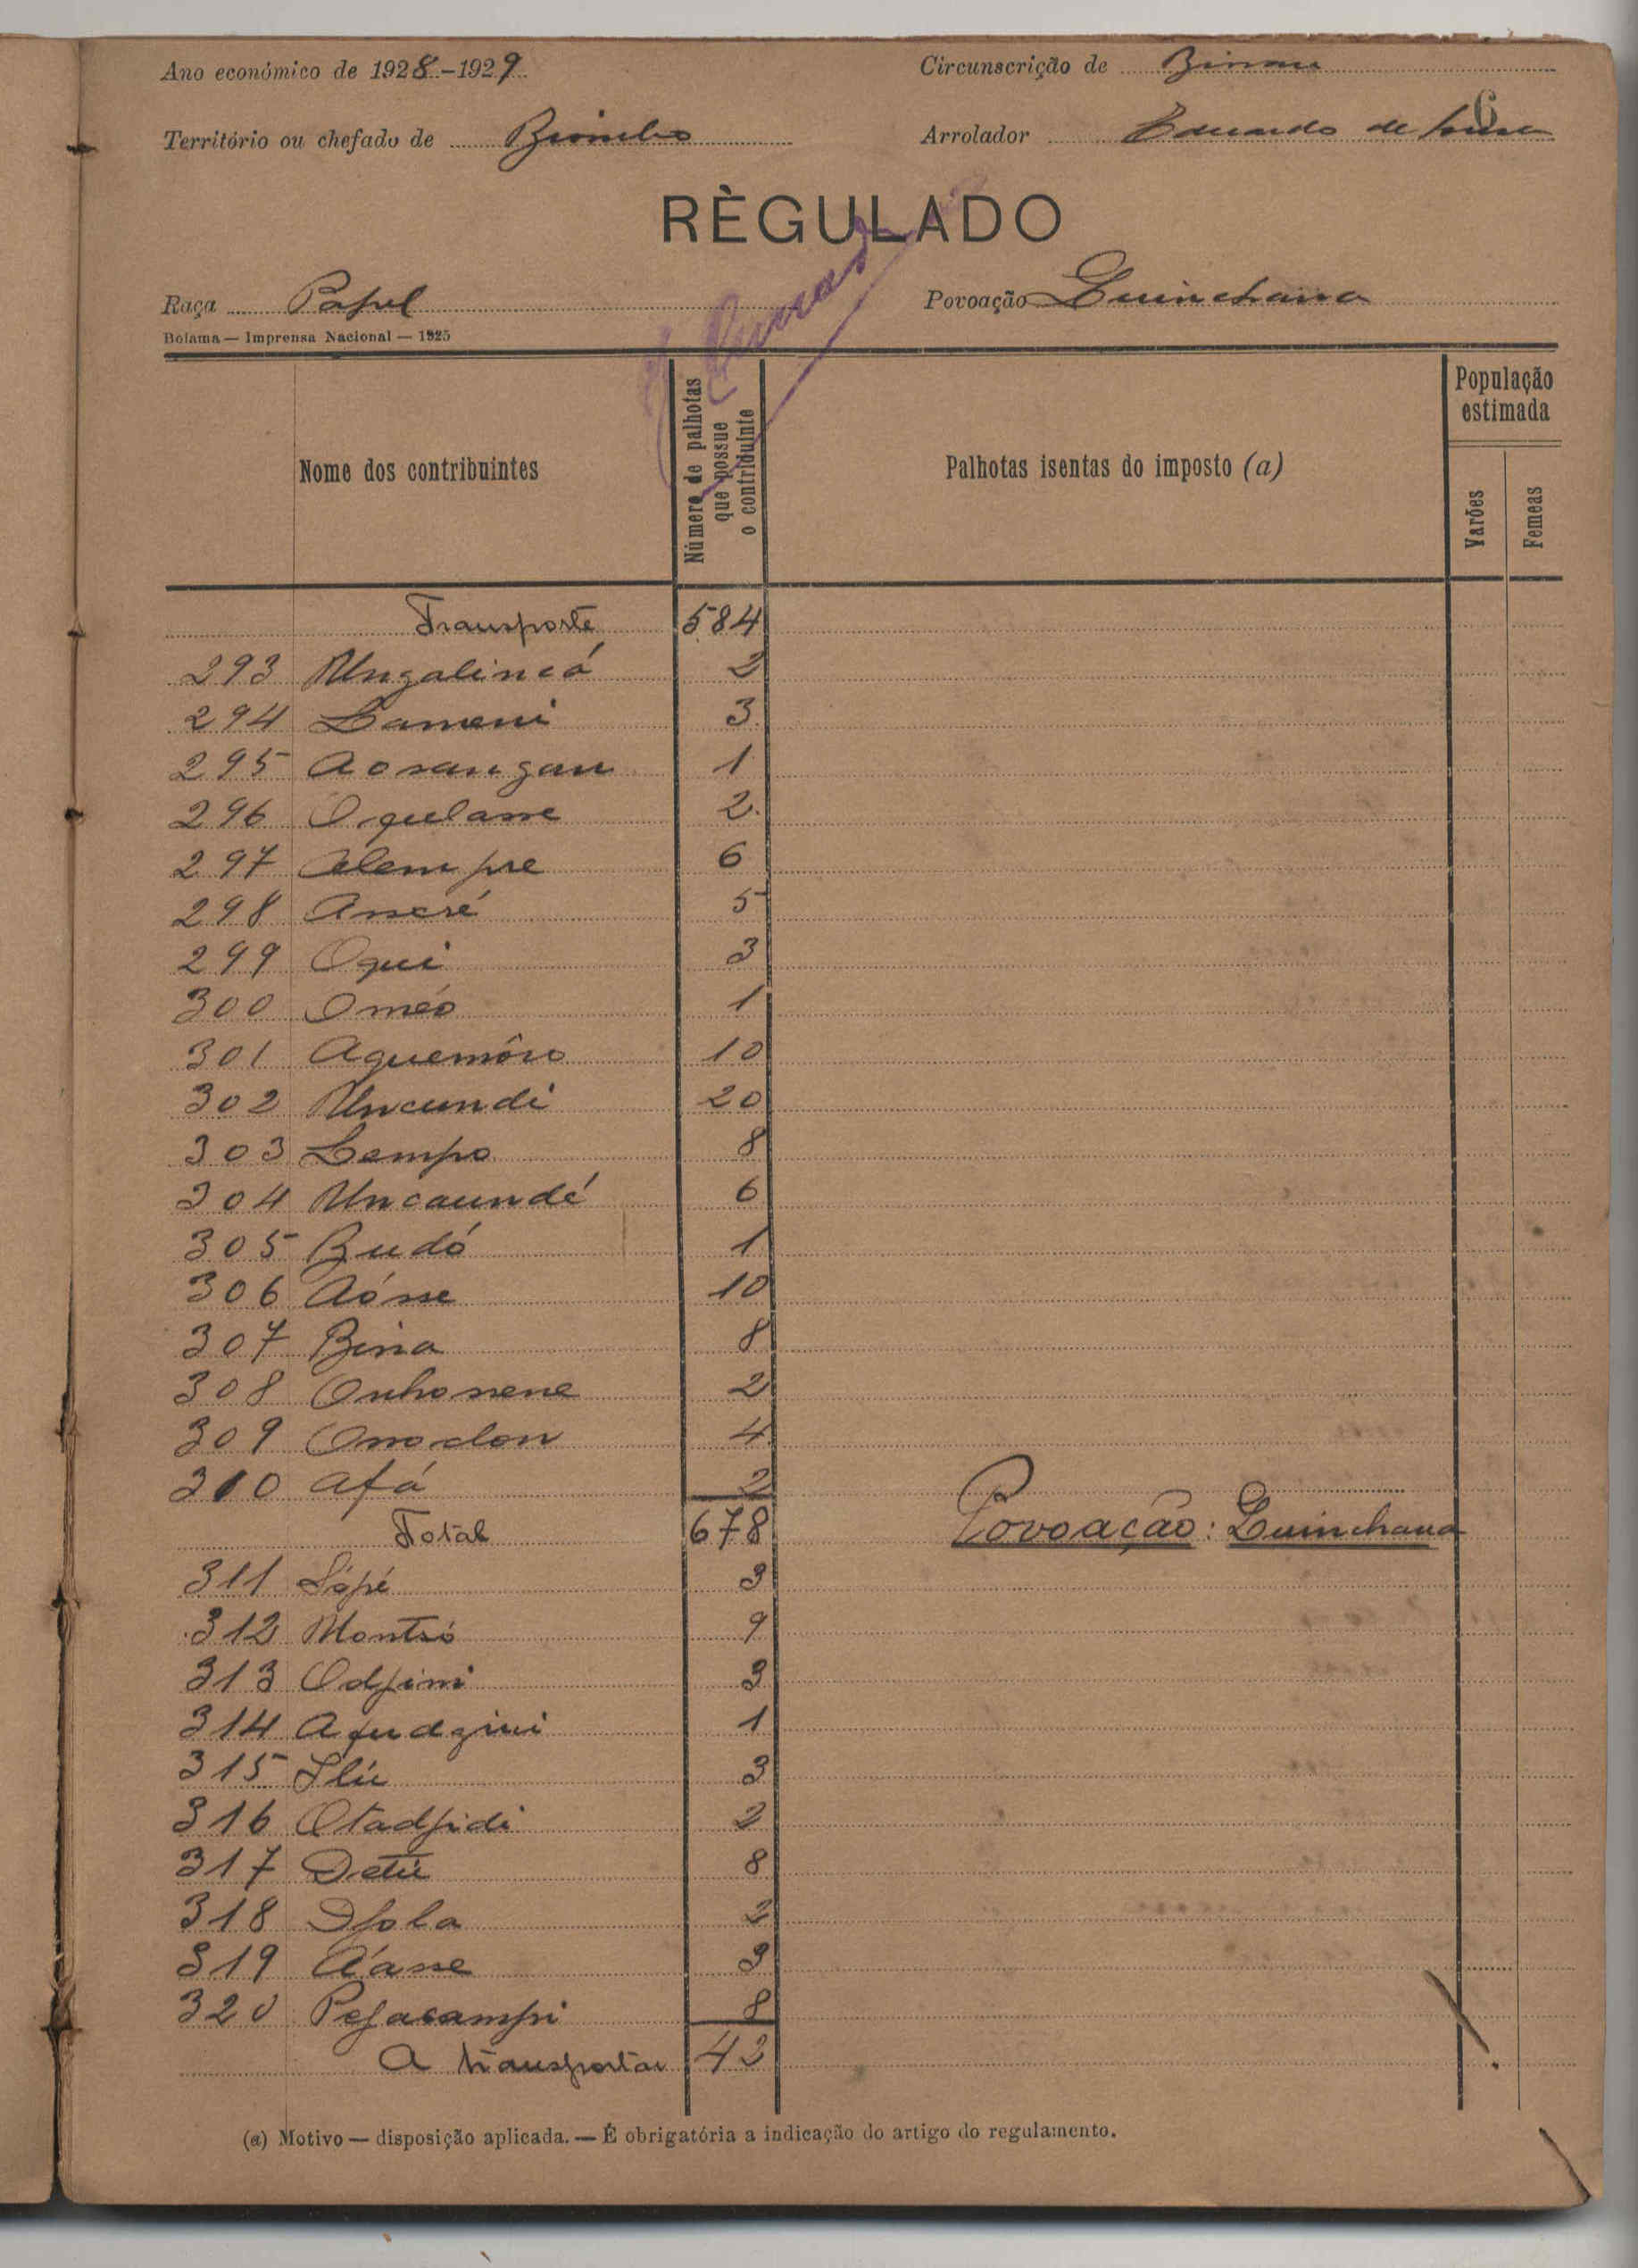 Ano económico de 1928-1929
Circunscrição de
6
Território ou chefado de Biombo
Arrolador Eduardo de
RÈGULADO
Raça Papel
Povoação Quinchana
Bolama — Imprensa Nacional — 1925
Nome dos contribuintes
Número de palhotas que possue o contribuinte
Palhotas isentas do imposto (a)
População estimada
Varões
Femeas
Transporte 584
293 Ungalincó 2
294 Lameni 3
295 Aosangan 1
296 Oquelasse 2
297 Alempre 6
298 Ancré 5
299 Oqui 3
300 Oméo 1
301 Aquemôro 10
302 Uncundi 20
303 Lempo 8
304 Uncaundé 6
305 Budó 1
306 Aósse 10
307 Bina 8
308 Onhossene 2
309 4
310 Afá 2
Total 678
Povoação: Quinchana
311 3
312 Montsó 9
313 Odjimi 3
314 1
315 3
316 Otadjidi 2
317 Detú 8
318 Djola 2
319 Aásse 3
320 Pejacampi 8
A transportar 42
(a) Motivo — disposição aplicada. — É obrigatória a indicação do artigo do regulamento.